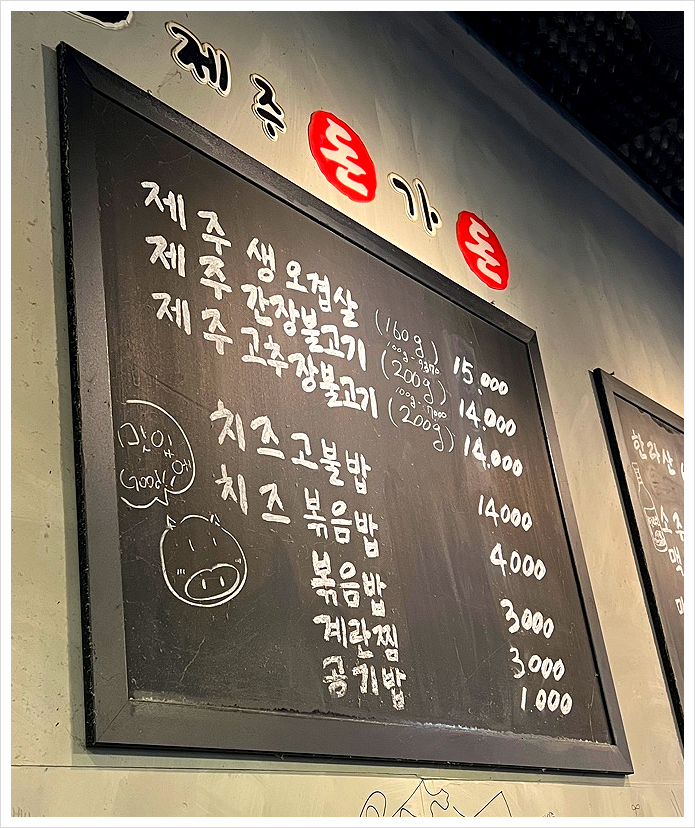 제주 돈가돈
제주 생오겹살 (160g) 15.000
100g-9370
제주 간장불고기 (200g) 14.000
100g-7000
제주 고추장불고기 (200g) 14.000
치즈고불밥 14000
치즈볶음밥 4.000
볶음밥 3000
계란찜 3000
공기밥 1.000
맛있
Good!
한라산
소주
맥